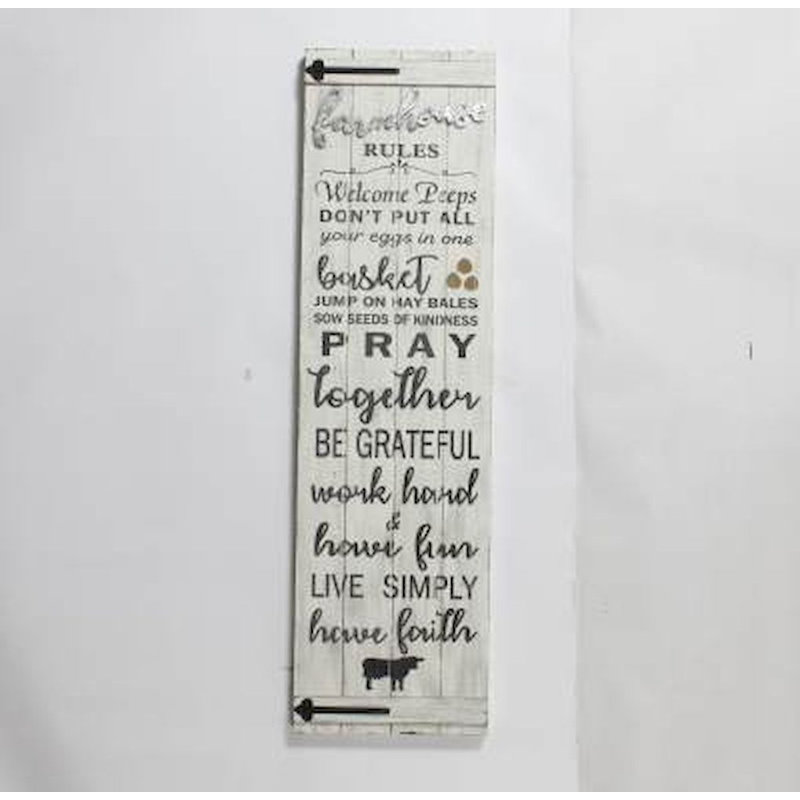 farmhouse
RULES
Welcome Peeps
DON'T PUT ALL
your eggs in one
basket
JUMP ON HAY BALES
SOW SEEDS OF KINDNESS
PRAY
together
BE GRATEFUL
work hard
&
have fun
LIVE SIMPLY
have faith